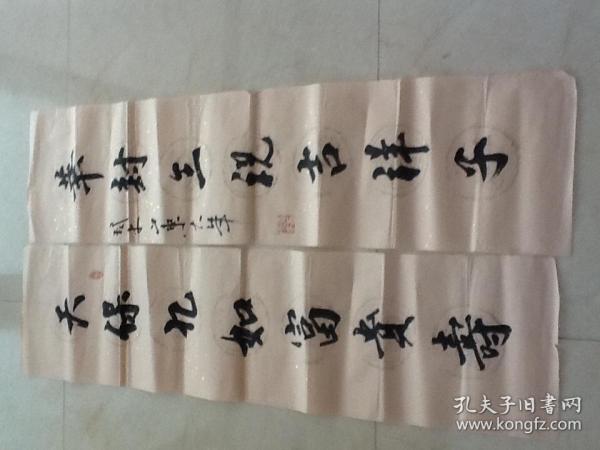 天保九如富貴壽
華封三祝吉祥子
孔夫子旧書网
www.kongfz.com